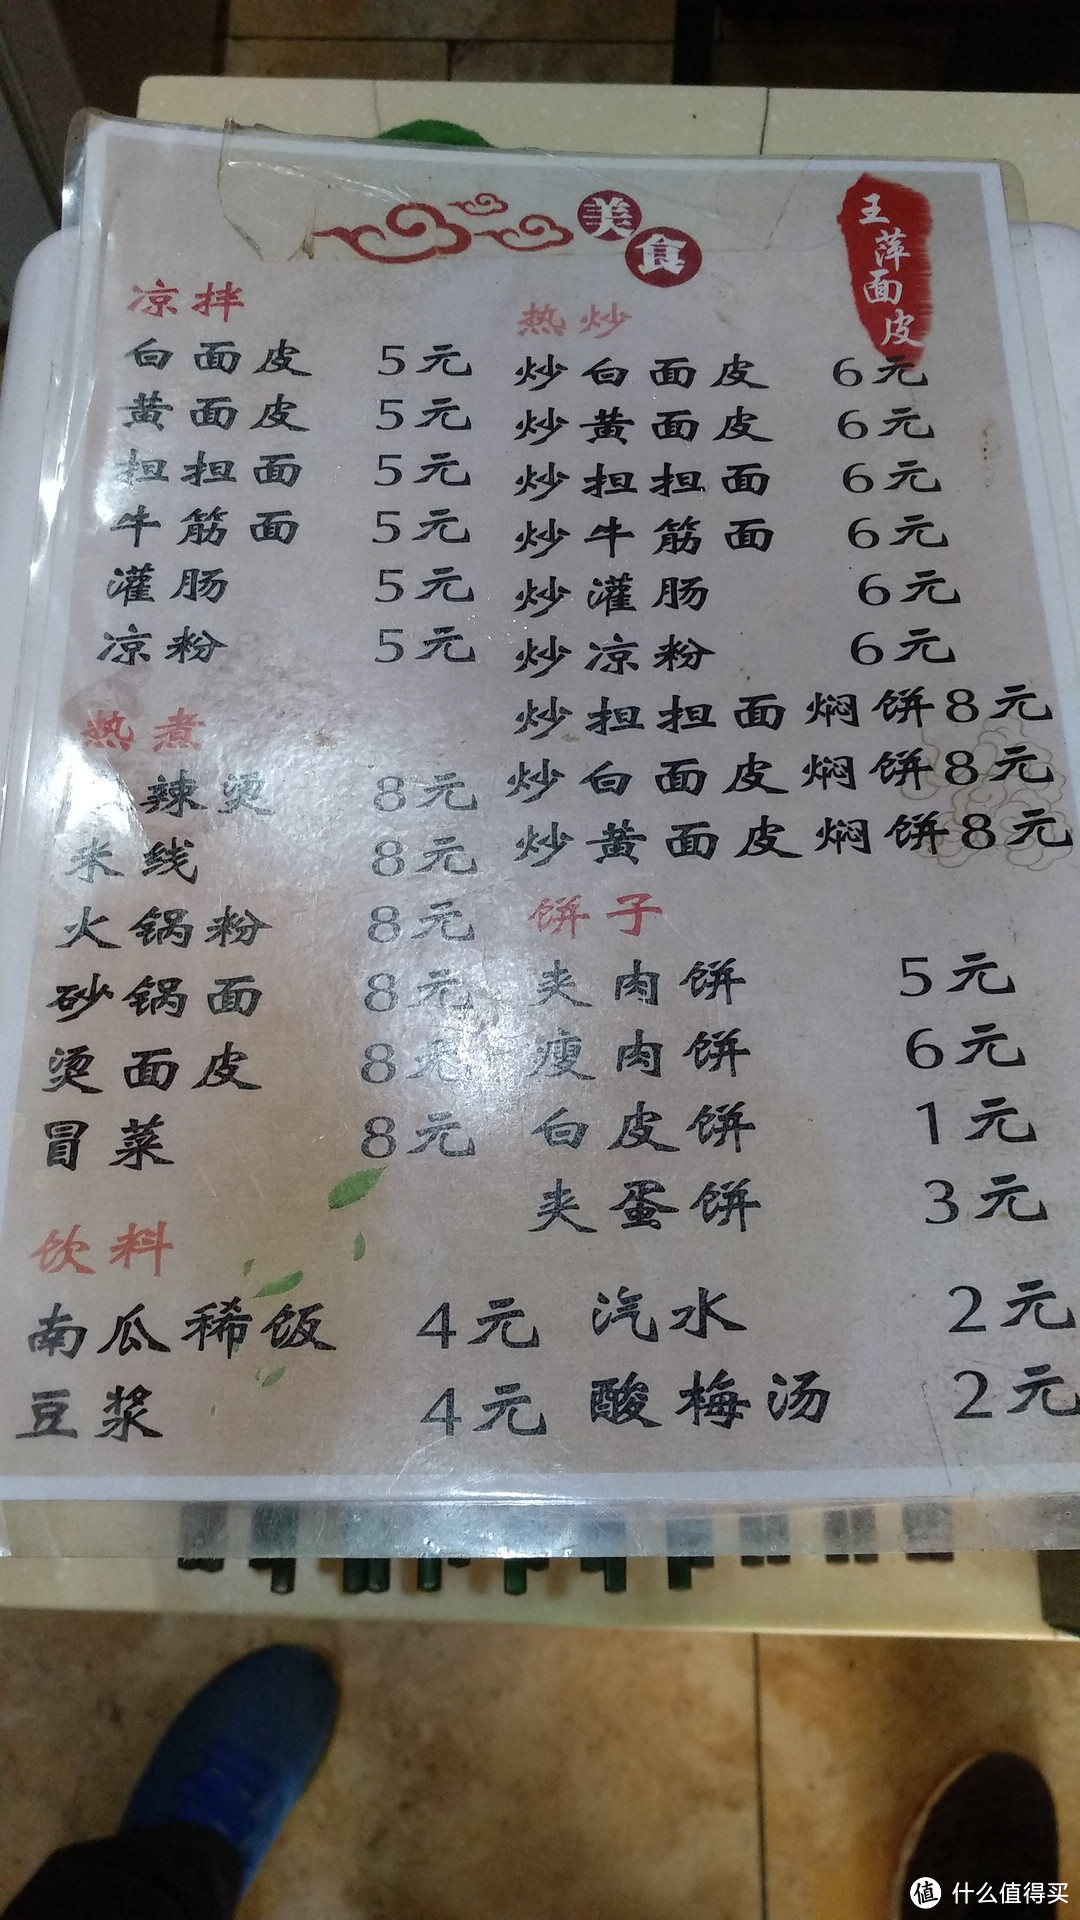 美食
王萍面皮
凉拌
白面皮 5元
黄面皮 5元
担担面 5元
牛筋面 5元
灌肠 5元
凉粉 5元
热煮
辣烫 8元
米线 8元
火锅粉 8元
砂锅面 8元
烫面皮 8元
冒菜 8元
热炒
炒白面皮 6元
炒黄面皮 6元
炒担担面 6元
炒牛筋面 6元
炒灌肠 6元
炒凉粉 6元
炒担担面焖饼8元
炒白面皮焖饼8元
炒黄面皮焖饼8元
饼子
夹肉饼 5元
瘦肉饼 6元
白皮饼 1元
夹蛋饼 3元
饮料
南瓜稀饭 4元 汽水 2元
豆浆 4元 酸梅汤 2元
值 什么值得买